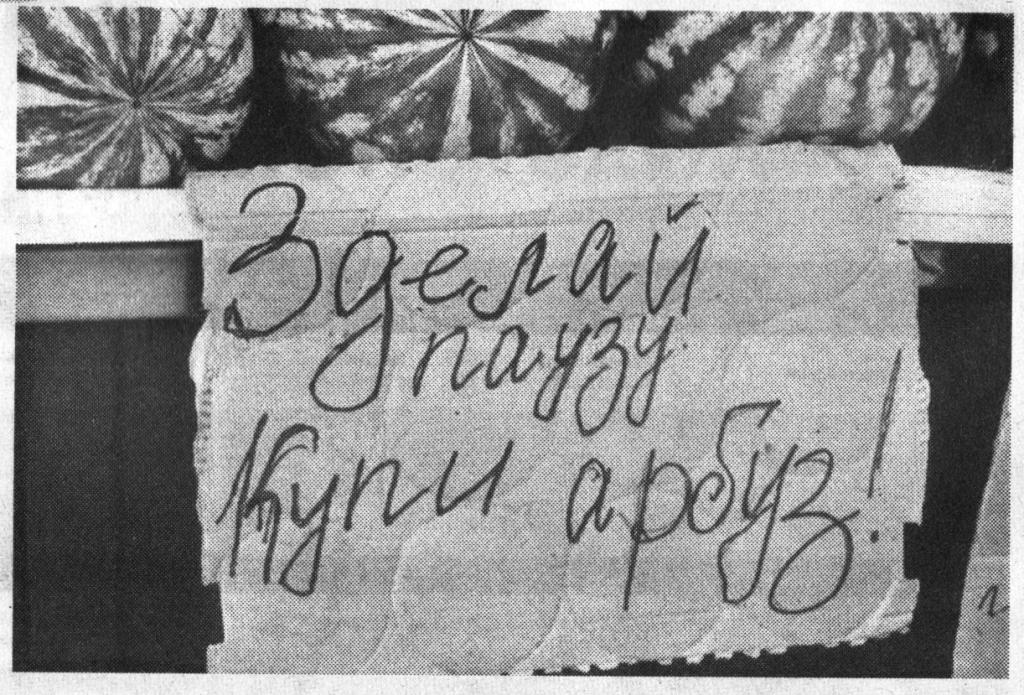 Зделай
паузу.
Купи арбуз!